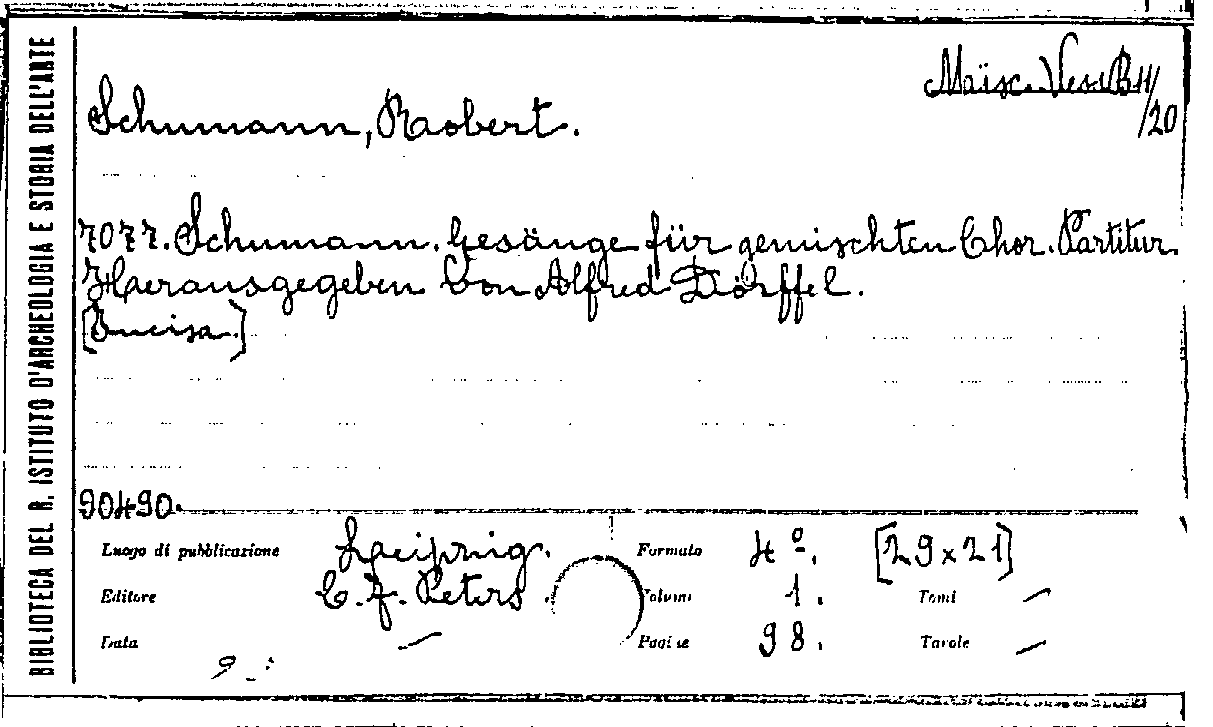 BIBLIOTECA DEL R. ISTITUTO D'ARCHEOLOGIA E STORIA DELL'ARTE
B 11/
/20
Schumann, Robert.
7077. Schumann. Gesänge für gemischten Chor. Partitur.
Herausgegeben von Alfred Dörffel.
[Incisa.]
90490.
Luogo di pubblicazione Leipzig. Formato 4º. [29x21]
Editore C. F. Peters. Volumi 1. Tomi —
Data — Pagine 98. Tavole —